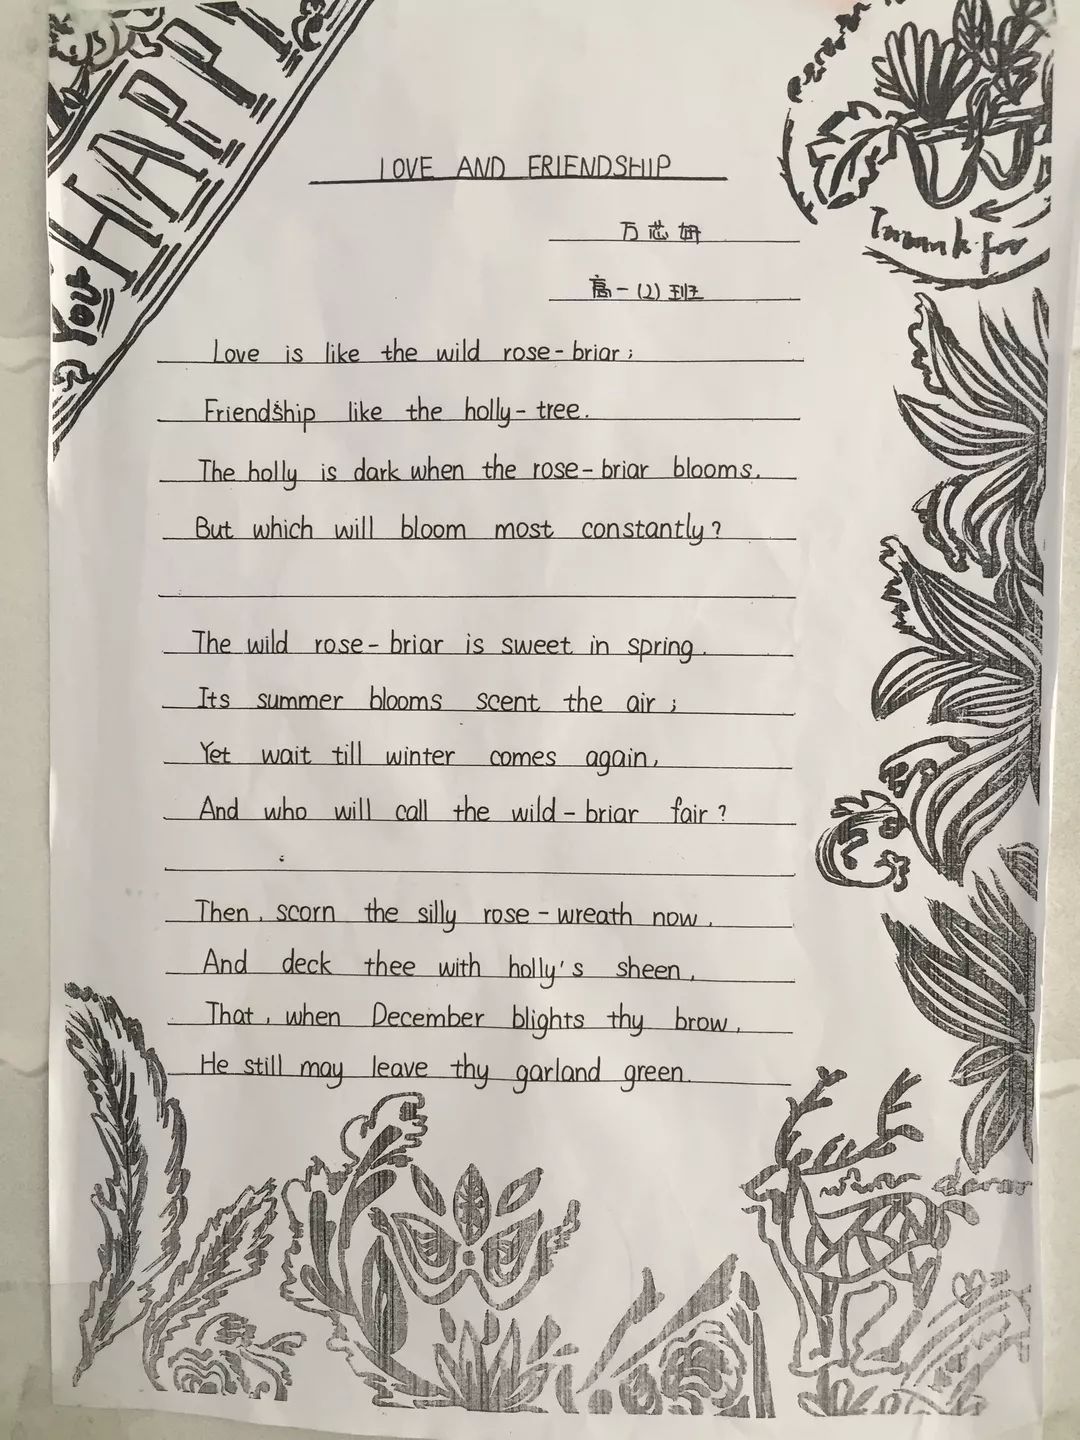 HAPPY
YOU
LOVE AND FRIENDSHIP
万芯妍
高一(2)班
Love is like the wild rose-briar;
Friendship like the holly-tree.
The holly is dark when the rose-briar blooms.
But which will bloom most constantly?
The wild rose-briar is sweet in spring.
Its summer blooms scent the air;
Yet wait till winter comes again,
And who will call the wild-briar fair?
Then, scorn the silly rose-wreath now,
And deck thee with holly's sheen,
That, when December blights thy brow,
He still may leave thy garland green.